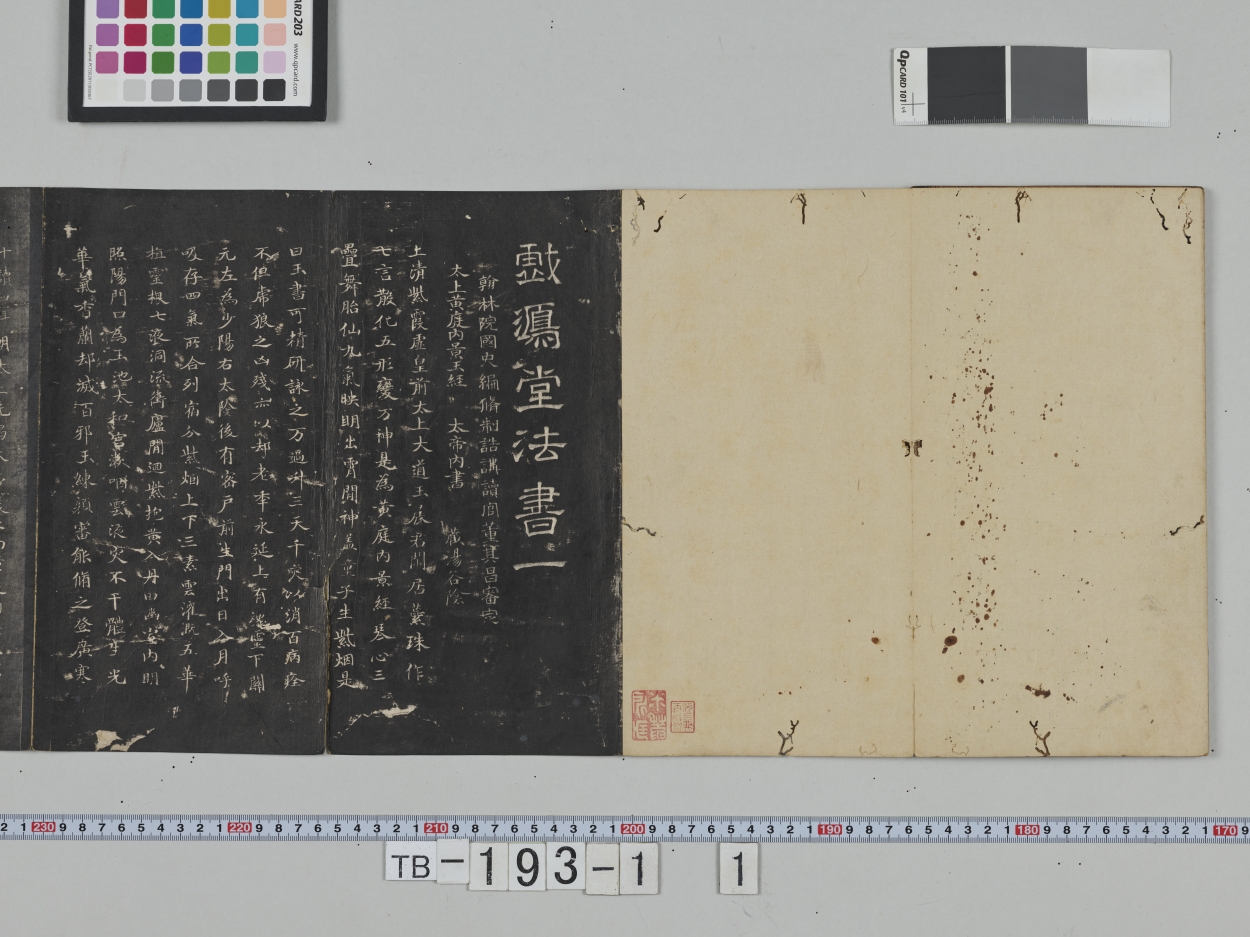 戲鴻堂法書一
翰林院國史編脩制誥講讀官董其昌審定
太上黃庭內景玉經 太帝內書 暘谷陰
上清紫霞虛皇前太上大道玉晨君閒居蘂珠作
七言散化五形變万神是為黃庭內景經琴心三
疊舞胎仙九氣映明出霄間神蓋童子生紫烟是
曰玉書可精研詠之万過升三天千災以消百病痊
不但虎狼之凶殘亦以却老年永延上有魂靈下關
元左為少陽右太陰後有密戶前生門出日入月呼
吸存四氣所合列宿分紫烟上下三素雲灌溉五華
植靈根七液洞流衝廬間迴紫抱黃入丹田幽室內明
照陽門口為玉池太和官漱咽靈液災不干體生光
華氣香蘭却滅百邪玉練顏審能脩之登廣寒
QpCARD 101 v4
CARD 203
www.qpcard.com
2 1 230 9 8 7 6 5 4 3 2 1 220 9 8 7 6 5 4 3 2 1 210 9 8 7 6 5 4 3 2 1 200 9 8 7 6 5 4 3 2 1 190 9 8 7 6 5 4 3 2 1 180 9 8 7 6 5 4 3 2 1 170 9
TB-193-1 1